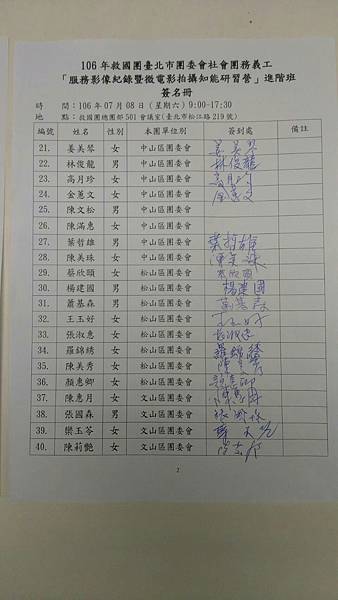 106年救國團臺北市團委會社會團務義工
「服務影像紀錄暨微電影拍攝知能研習營」進階班
簽名冊
時 間：106年07月08日(星期六)9:00-17:30
地 點：救國團總團部501會議室(臺北市松江路219號)
編號 姓名 性別 本團單位別 簽到處 備註
21. 姜美琴 女 中山區團委會 姜美琴
22. 林俊龍 男 中山區團委會 林俊龍
23. 高月珍 女 中山區團委會 高月珍
24. 金蕙文 女 中山區團委會 金蕙文
25. 陳文松 男 中山區團委會
26. 陳滿惠 女 中山區團委會
27. 葉哲雄 男 中山區團委會 葉哲雄
28. 陳美珠 女 中山區團委會 陳美珠
29. 蔡欣頤 女 松山區團委會
30. 楊建國 男 松山區團委會 楊建國
31. 蕭基森 男 松山區團委會
32. 王玉好 女 松山區團委會
33. 張淑惠 女 松山區團委會 張淑惠
34. 羅錦綉 女 松山區團委會
35. 陳美秀 女 松山區團委會 陳美秀
36. 顏惠卿 女 松山區團委會 顏惠卿
37. 陳惠月 女 文山區團委會 陳惠月
38. 張國森 男 文山區團委會
39. 欒玉苓 女 文山區團委會
40. 陳莉艷 女 文山區團委會
2